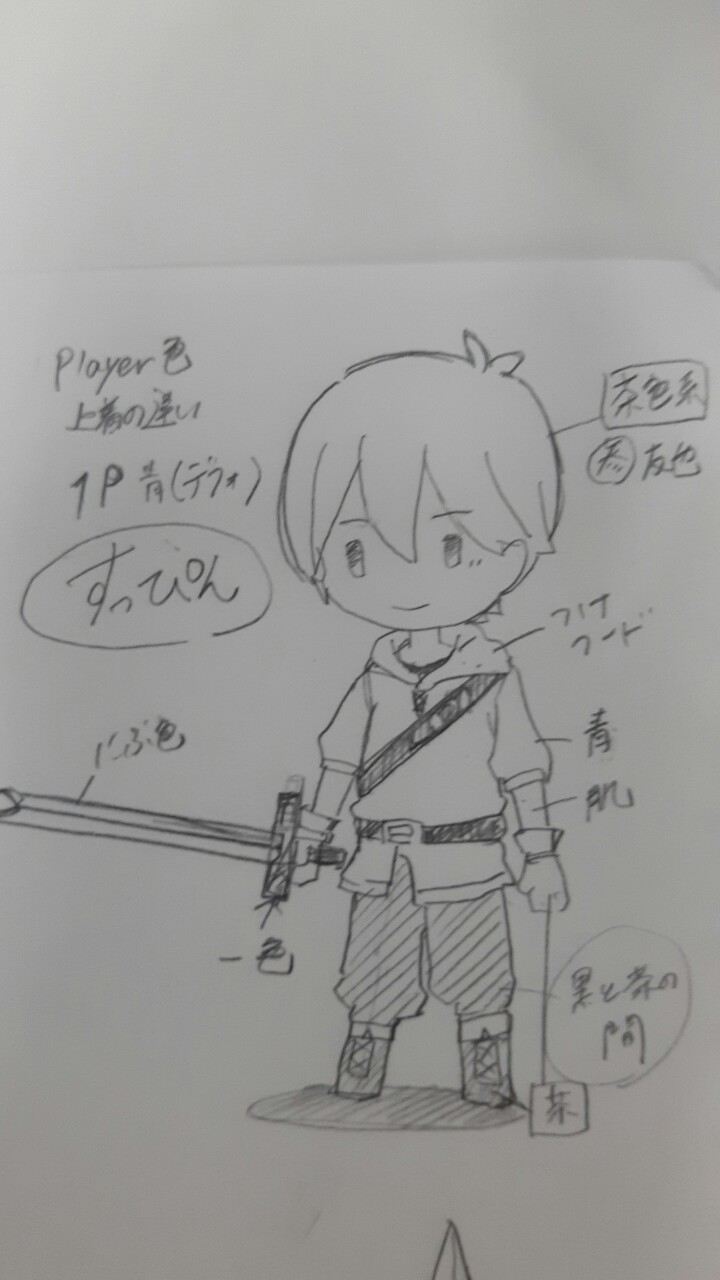 Player色
上着の違い
1P 青(デフォ)
すっぴん
茶色系
友也
つけ
フード
にぶ色
青
肌
一色
黒と茶の
間
茶